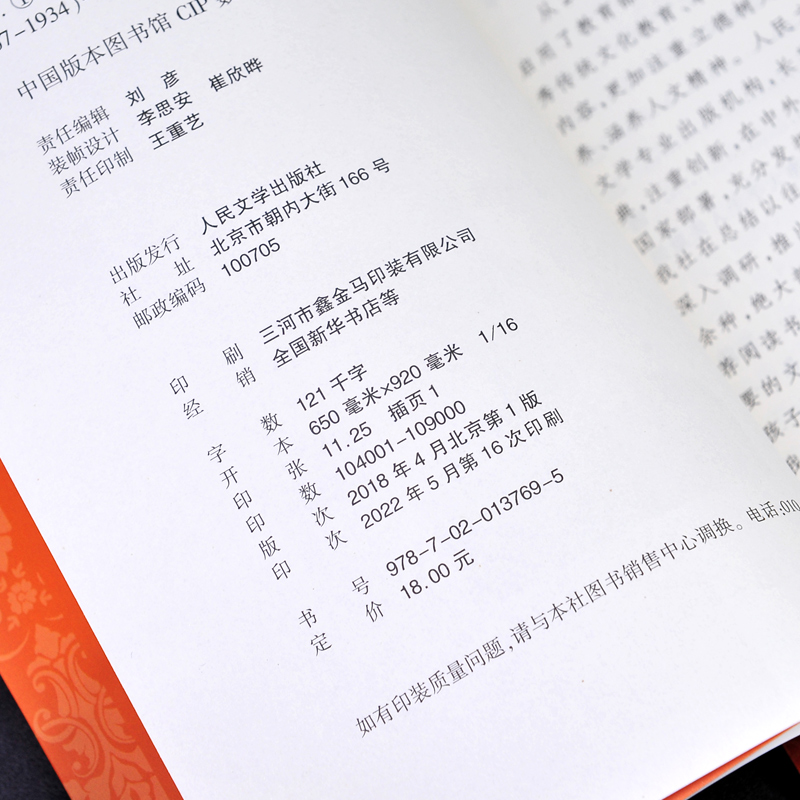 7-1934)
中国版本图书馆 CIP 数
责任编辑 刘 彦
装帧设计 李思安 崔欣晔
责任印制 王重艺
出版发行 人民文学出版社
社 址 北京市朝内大街 166 号
邮政编码 100705
印 刷 三河市鑫金马印装有限公司
经 销 全国新华书店等
字 数 121 千字
开 本 650 毫米×920 毫米 1/16
印 张 11.25 插页 1
印 数 104001-109000
版 次 2018 年 4 月北京第 1 版
印 次 2022 年 5 月第 16 次印刷
书 号 978-7-02-013769-5
定 价 18.00 元
如有印装质量问题,请与本社图书销售中心调换。电话:010
启用了教育部
秀传统文化教育、
内容,更加注重立德树人
养、涵养人文精神。人民
文学专业出版机构,长
典,注重创新,在中外
国家部署,充分发挥
我社在总结以往
深入调研,推出
余种,绝大部
荐阅读书
要的文
孩子